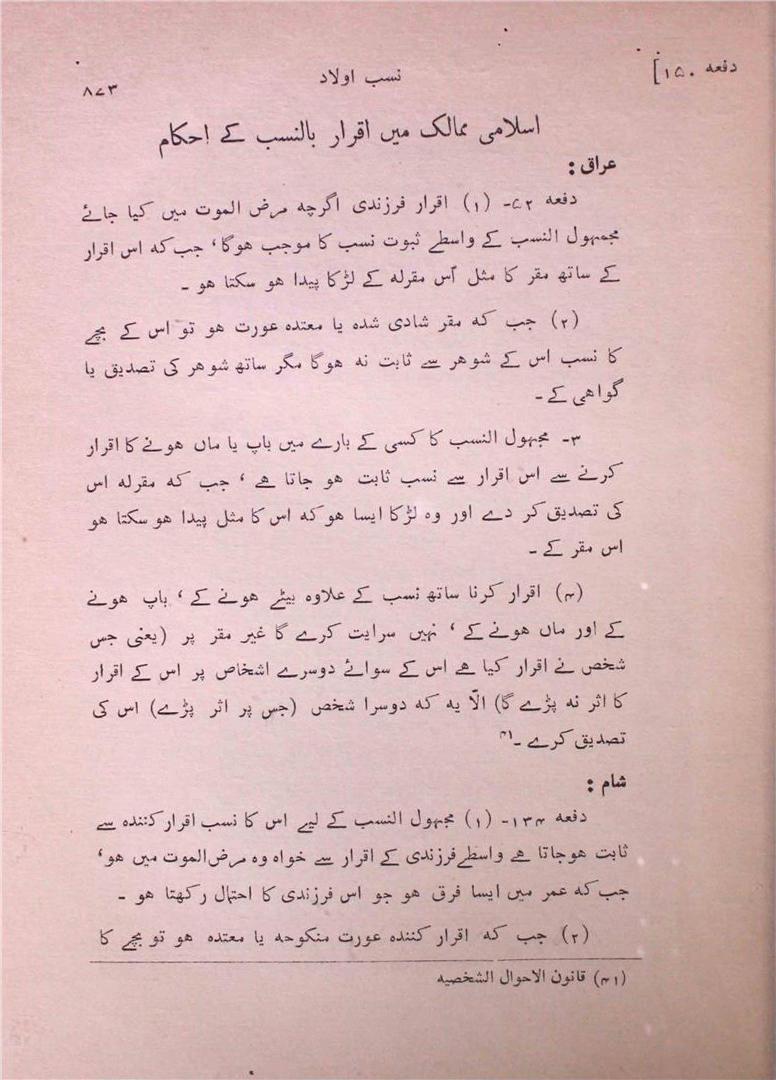 دفعہ ۱۵۰]
نسب اولاد
۸۷۳
اسلامی ممالک میں اقرار بالنسب کے احکام
عراق :
دفعہ ۵۲- (۱) اقرار فرزندی اگرچہ مرض الموت میں کیا جائے
مجمہول النسب کے واسطے ثبوت نسب کا موجب ہوگا، جب کہ اس اقرار
کے ساتھ مقر کا مثل اُس مقرلہ کے لڑکا پیدا ہو سکتا ہو ۔
(۲) جب کہ مقر شادی شدہ یا معتدہ عورت ہو تو اس کے بچے
کا نسب اس کے شوہر سے ثابت نہ ہوگا مگر ساتھ شوہر کی تصدیق یا
گواہی کے ۔
۳- مجہول النسب کا کسی کے بارے میں باپ یا ماں ہونے کا اقرار
کرنے سے اس اقرار سے نسب ثابت ہو جاتا ہے ، جب کہ مقرلہ اس
کی تصدیق کر دے اور وہ لڑکا ایسا ہو کہ اس کا مثل پیدا ہو سکتا ہو
اس مقر کے ۔
(۴) اقرار کرنا ساتھ نسب کے علاوہ بیٹے ہونے کے ، باپ ہونے
کے اور ماں ہونے کے ، نہیں سرایت کرے گا غیر مقر پر (یعنی جس
شخص نے اقرار کیا ہے اس کے سوائے دوسرے اشخاص پر اس کے اقرار
کا اثر نہ پڑے گا) الّا یہ کہ دوسرا شخص (جس پر اثر پڑے) اس کی
تصدیق کرے ۔۴۱
شام :
دفعہ ۱۳۴- (۱) مجہول النسب کے لیے اس کا نسب اقرار کنندہ سے
ثابت ہو جاتا ہے واسطے فرزندی کے اقرار سے خواہ وہ مرض الموت میں ہو،
جب کہ عمر میں ایسا فرق ہو جو اس فرزندی کا احتمال رکھتا ہو ۔
(۲) جب کہ اقرار کنندہ عورت منکوحہ یا معتدہ ہو تو بچے کا
(۴۱) قانون الاحوال الشخصیہ